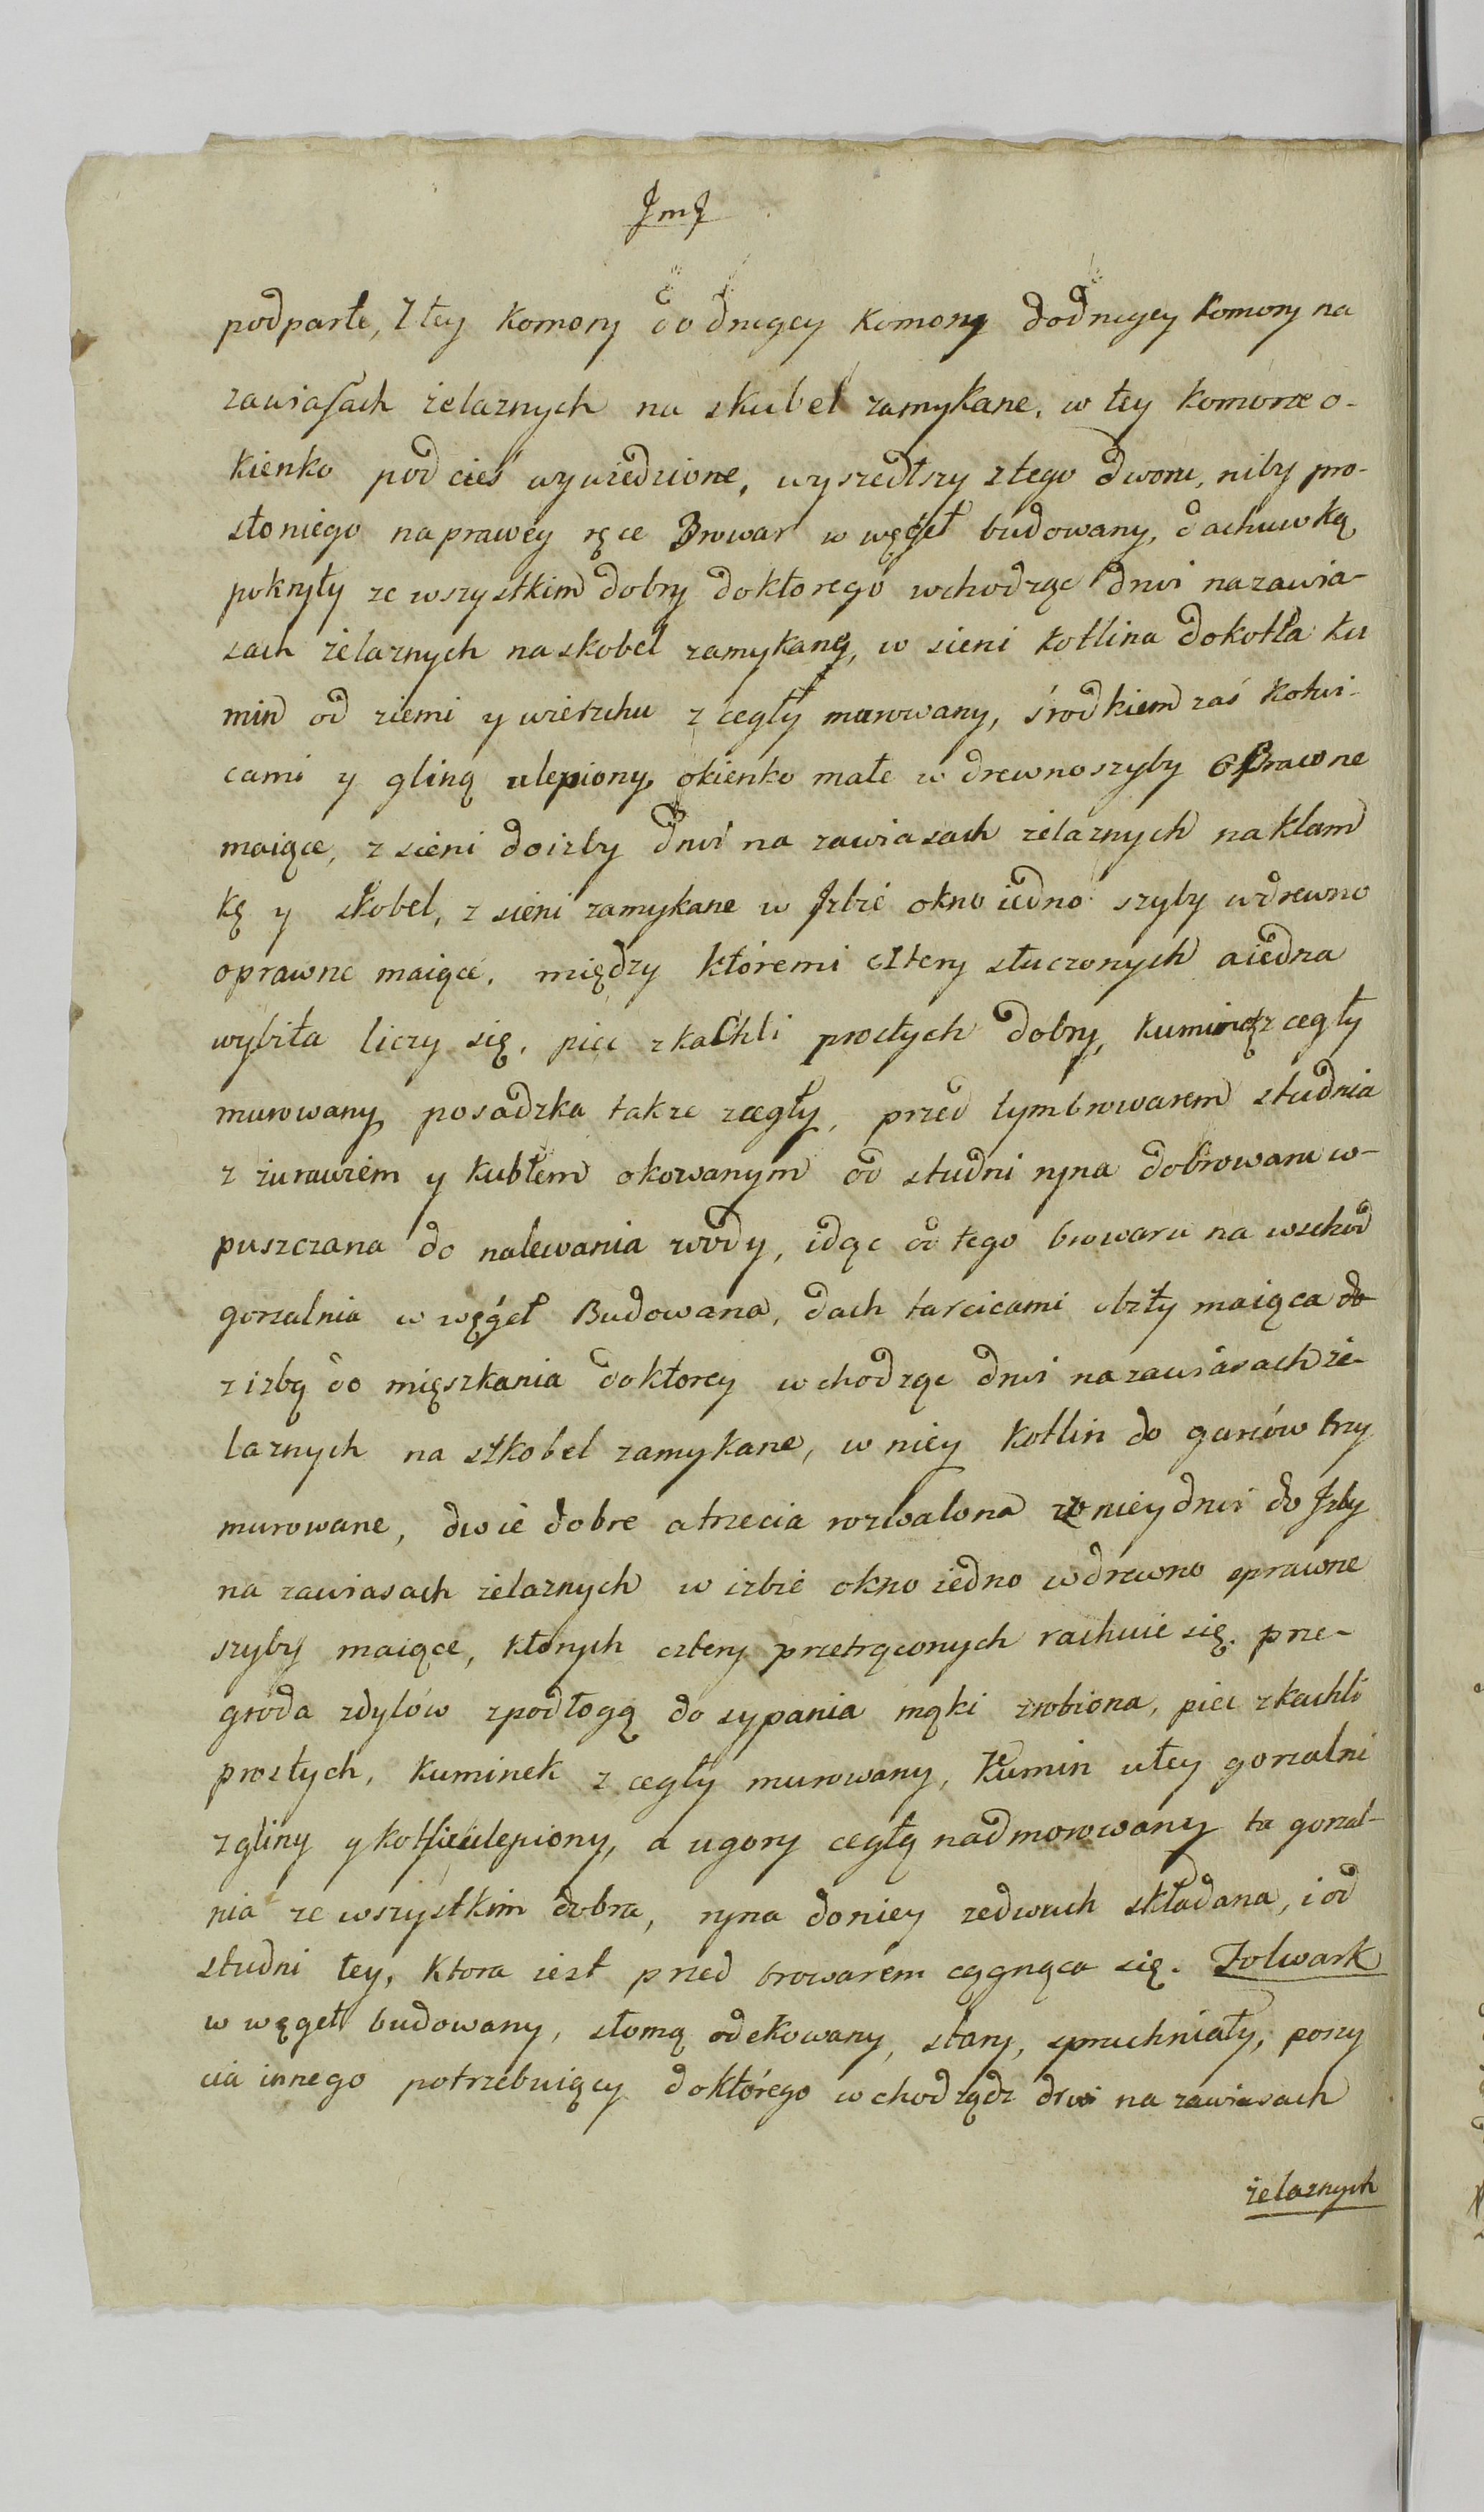 JmJ
podparte, z tey komory do drugey komory do drugey komory na
zawiasach żelaznych na skubel zamykane, w tey komorze o-
kienko pod cieś wywiedzione, wyszedłszy z tego dworu, niby pro-
sto niego na prawey ręce Browar w węgeł budowany, dachuwką
pokryty ze wszystkim dobry do ktorego wchodząc drwi na zawia-
sach żelaznych na skobel zamykane, w sieni kotlina do kotła ku
min od ziemi y wierzchu z cegły murowany, środkiem zaś kotwi-
cami y gliną ulepiony, okienko małe w drewno szyby oprawne
maiące, z sieni do izby drwi na zawiasach żelaznych na klam
kę y skobel, z sieni zamykane w Jzbie okno iedno szyby w drewno
oprawne maiące, między któremi cztery stuczonych a iedna
wybita liczy się, piec z kachli prostych dobry, kuminek z cegły
murowany posadzka takze z cegły, przed tym browarem studnia
z żurawiem y kubłem okowanym od studni ryna do browaru w-
puszczana do nalewania wody, idąc od tego browaru na wschod
gorzalnia w węgeł Budowana, dach tarcicami zbity maiąca do
z izbą do mięszkania do ktorey wchodząc drwi na zawiasach że-
laznych na szkobel zamykane, w niey kotlin do garców trzy
murowane, dwie dobre a trzecia rozwalona w niey drwi do Jzby
na zawiasach żelaznych w izbie okno iedno w drewno oprawne
szyby maiące, ktorych cztery przetrąconych rachuie się. prze-
groda z dylów z podłogą do sypania mąki zrobiona, piec z kachli
prostych, kuminek z cegły murowany, kumin u tey gorzalni
z gliny y kotlic ulepiony, a u gory cegłą nadmorowany ta gorzal-
nia ze wszystkim dobra, ryna do niey ze dwuch składana, i od
studni tey, ktora iest przed browarem cągnąca się. Folwark
w węgeł budowany, słomą odekowany, stary, spruchniały, poszy
cia innego potrzebuiący do którego wchodządz drwi na zawiasach
żelaznych